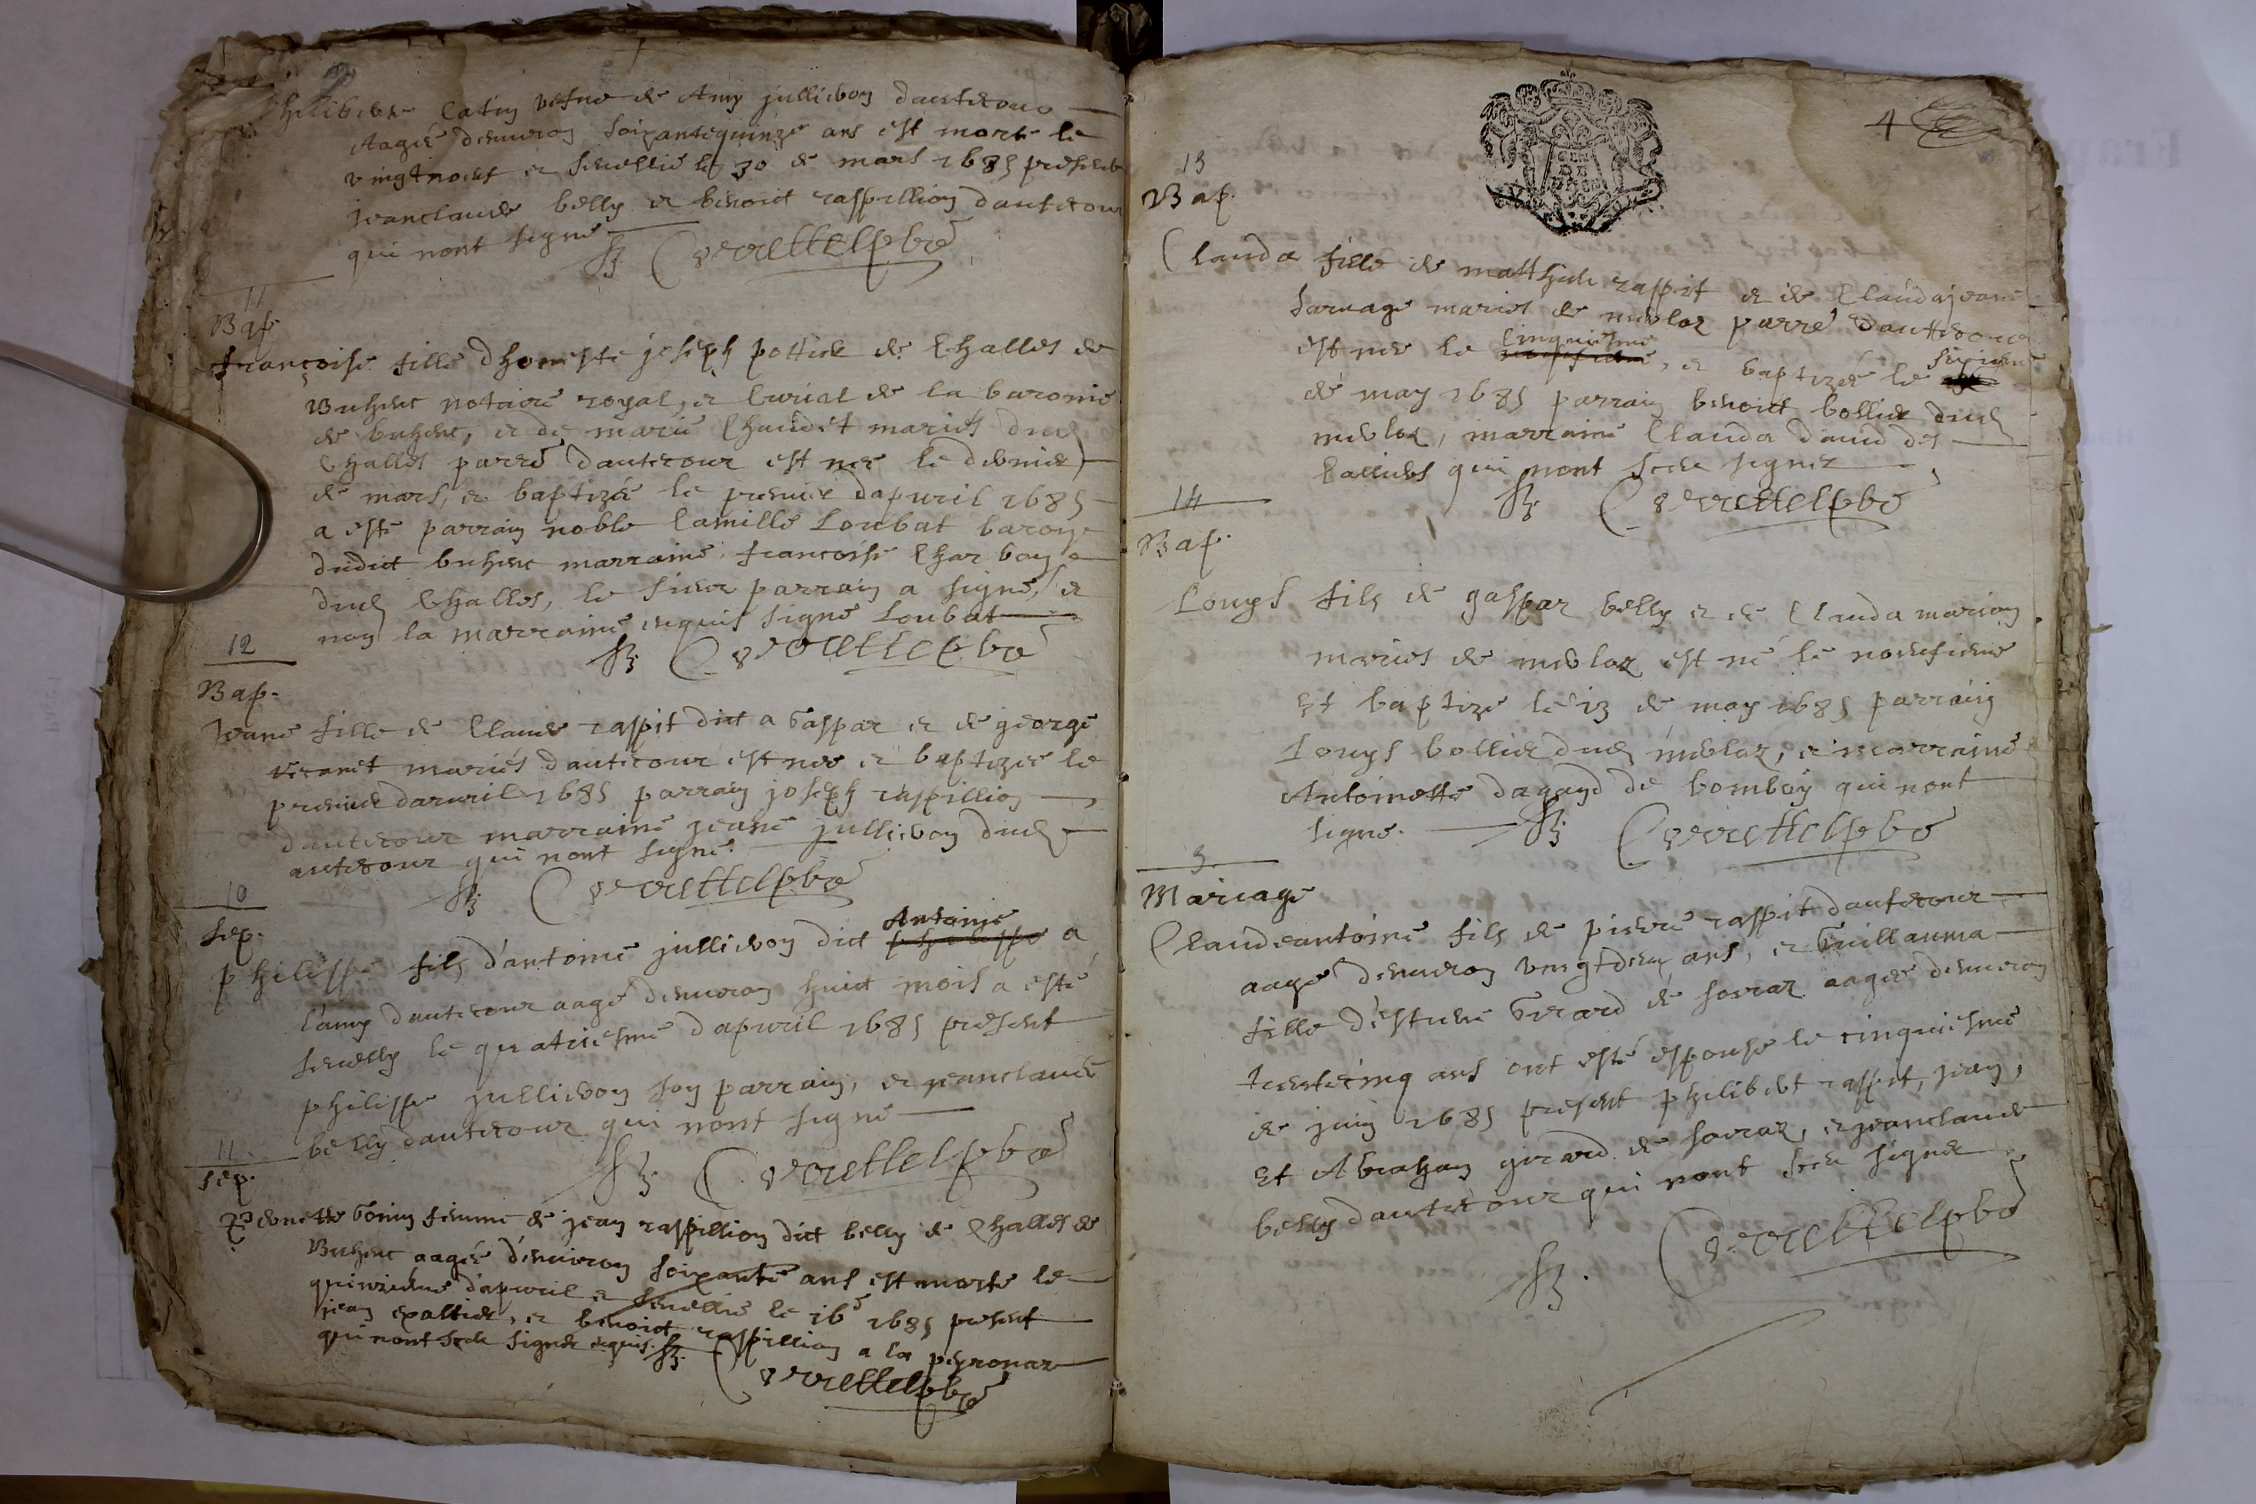 Philiberte Catin vefue de Amy jullieron dauterour
Aagée denuiron soixantequinze ans est morte le
vingtneuf et seuellie le 30 de mars 1685 presents
jeanclaude belly et benoict raspillion dauterour
qui nont signe
11
Bap.
françoise fille dhoneste joseph pottier de Challes de
Buhenc notaire royal, et curial de la baronie
de buhenc, et de marie Chaudet mariés dud
Challes parr͞e dauterour est nee le dernier
de mars, et baptizée le premier dapuril 1685
a esté parrain noble Camille Loubat baron
dudict buhenc marraine francoise Charbon
dud Challes, le sieur parrain a signé, et
non la marraine enquis signé Loubat
12
Bap.
Jeane fille de Claude raspit dict a Gaspar et de george
mariés dauterour est nee et baptizee le
premier dapuril 1685 parrain joseph raspillion
dauterour marraine jeane jullieron dud
auterour qui nont signé.
10
Sep.
philippe fils d'antoine jullieron dict Antoine a
l'amy dauterour aagé denuiron huict mois a esté
seuelly le quatriesme dapuril 1685 present
philippe jullieron son parrain, et jeanclaude
belly dauterour qui nont signé
11
Sep.
Gonin femme de jean raspillion dict belly de Challes de
Buhenc aagée denuiron soixante ans est morte le
quinzieme dapuril et seuellie le 16e 1685 present
jean et benoict raspillion a la peyronar
qui nont sceu signer enquis.
4
13
Bap.
Clauda fille de matthieu raspit et de Claudajeane
Saruage mariés de meulaz parr͞e dauterour
est nee le cinquiesme, et baptizée le sixieme
de may 1685 parrain benoict bollier dud
meulaz, marraine Clauda dauid des
qui nont sceu signer
14
Bap.
Louys fils de gaspar belly et de Clauda marion
mariés de meulaz est né le neufieme
Et baptize le 13 de may 1685 parrain
Louys bollier dud meulaz, et marraine
Antoinette dagayd de bomboy qui nont
signé.
3
Mariage
Claudeantoine fils de pierre raspit dauterour
aagé denuiron vingtdeux ans, et Guillauma
fille d'esteue Girard de sovraz aagée denuiron
trentecinq ans ont esté espouse le cinquiesme
de juin 1685 present philibert raspit, jean,
Et Abraham girard de sovraz, et jeanclaude
belly dauterour qui nont sceu signer